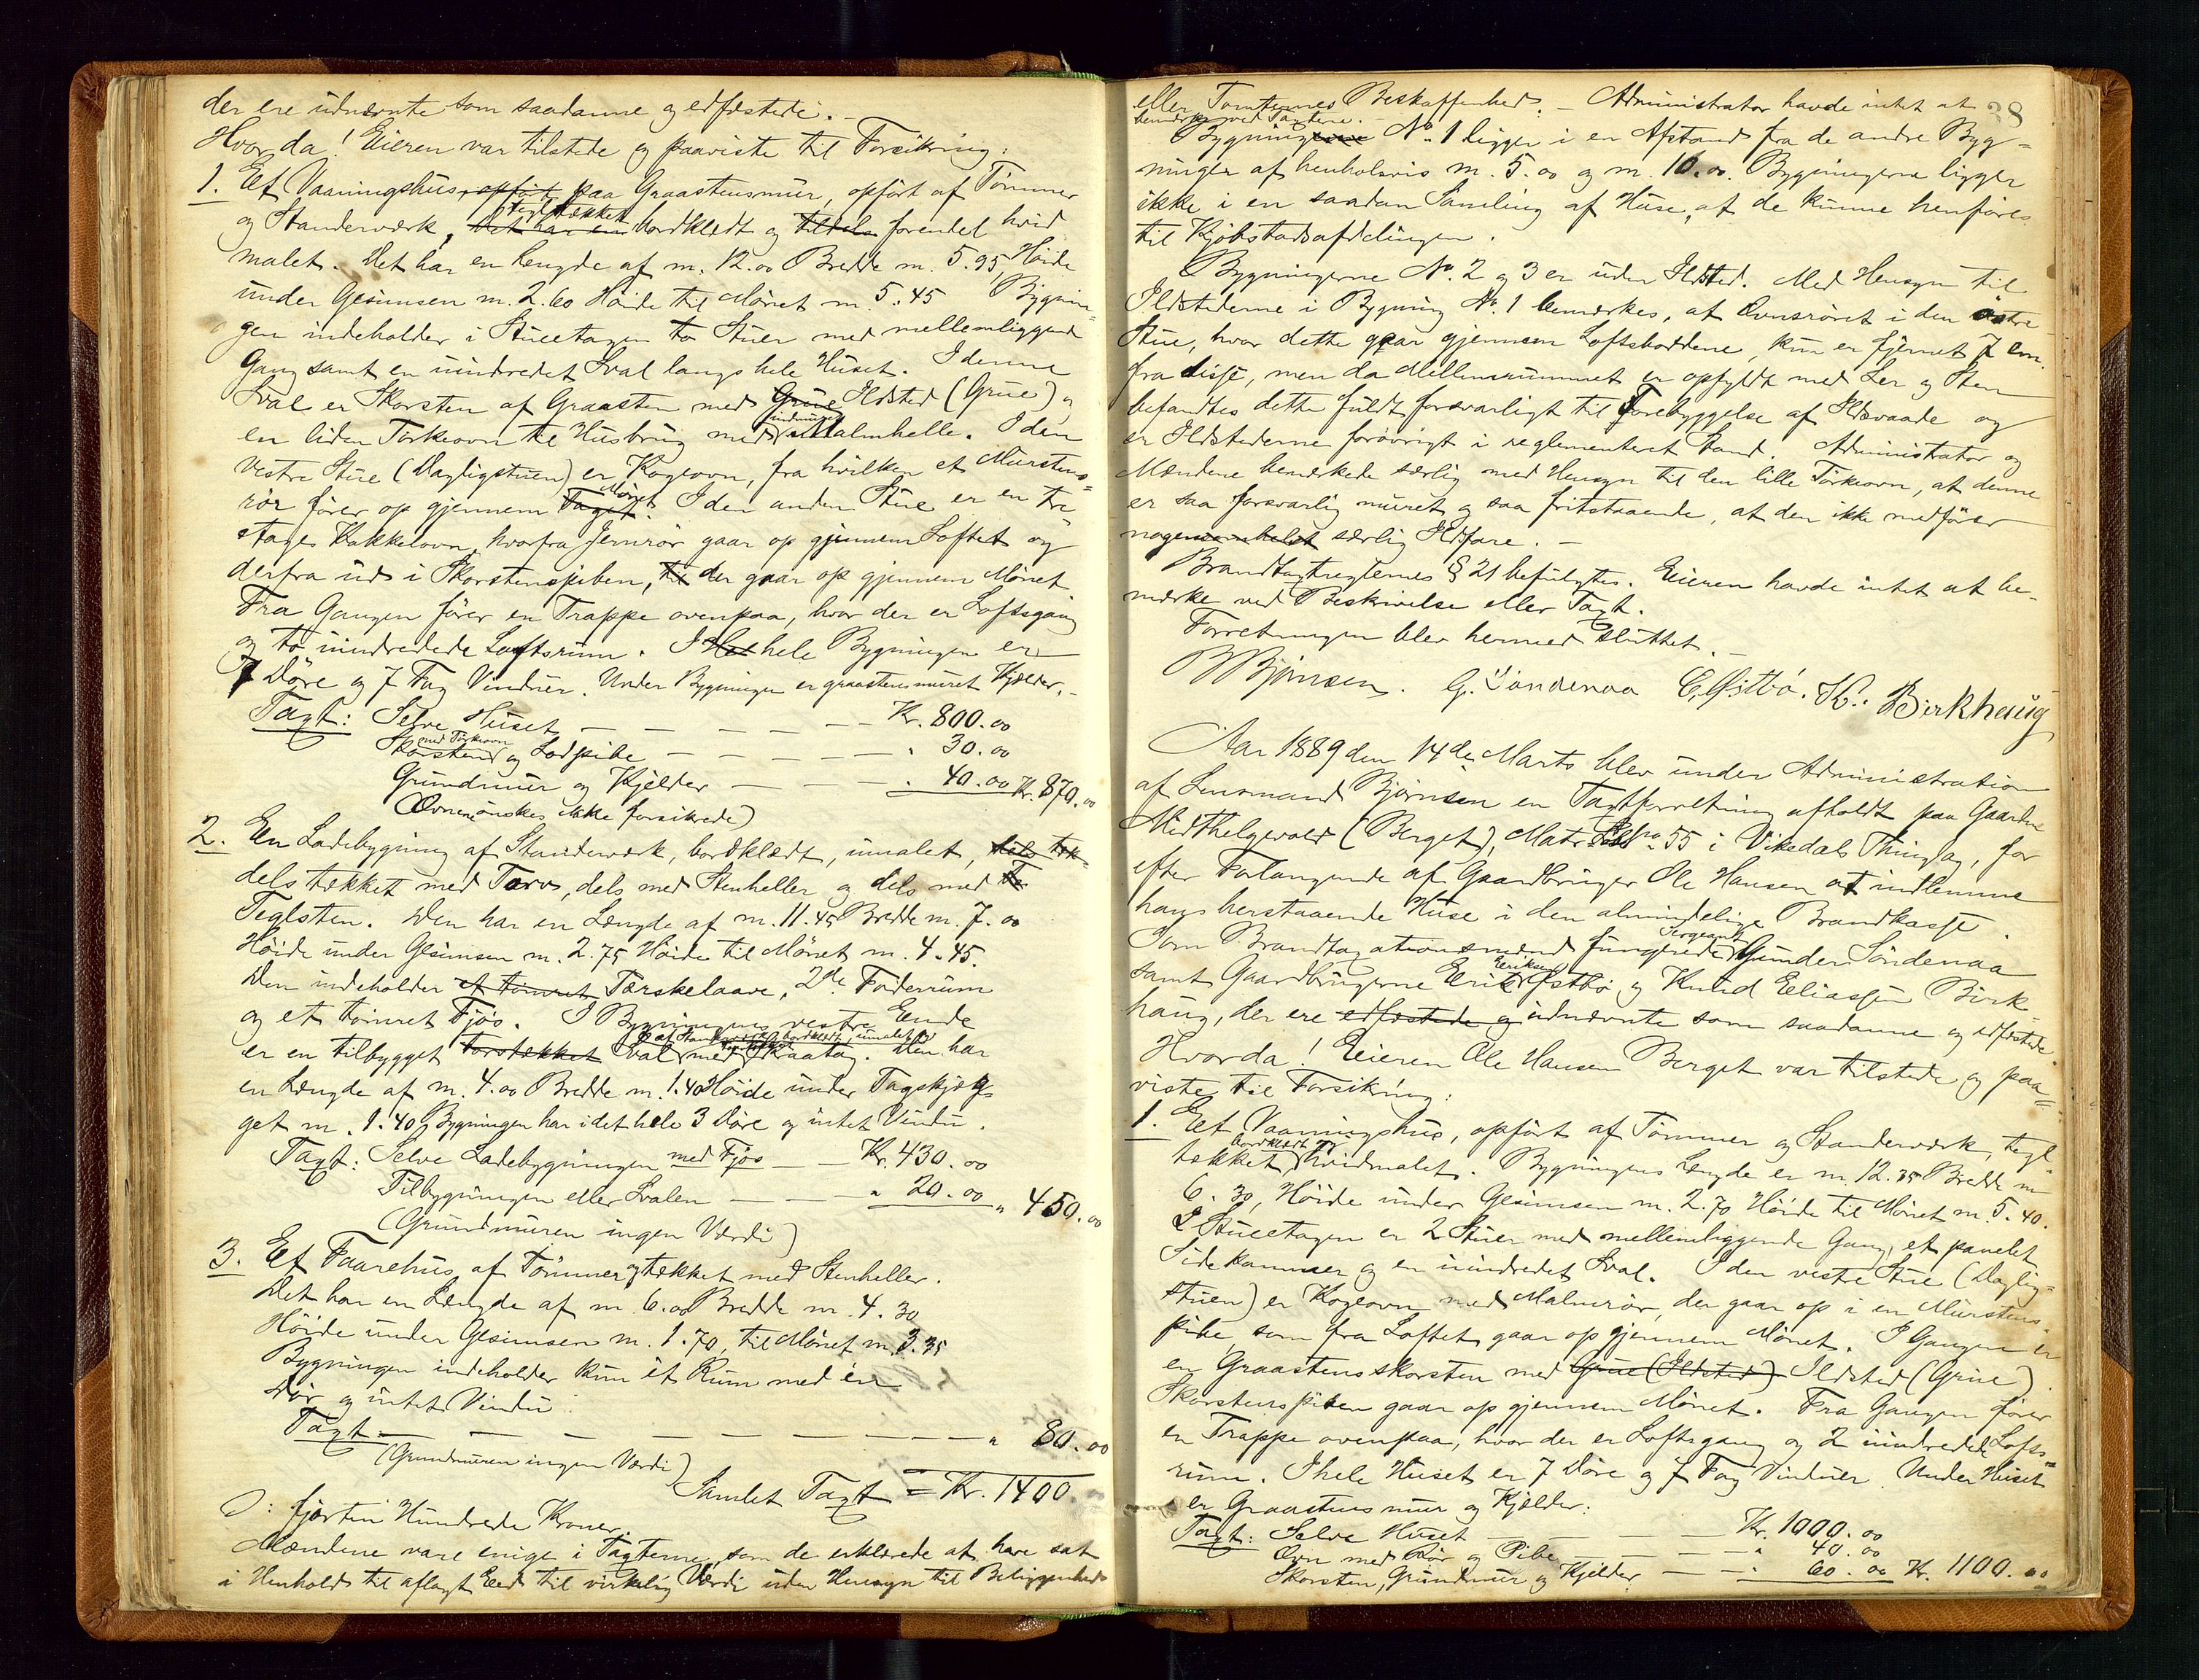 der ere udnævnte som saadanne og edfæstede. –
Hvor da! Eieren var tilstede og paaviste til Forsikring:
1. Et Vaaningshus, opført paa Graastensmur, opført af Tømmer
og Standerværk, tegltækket Det har en bordklædt og tildels forendel hvid
malet. Det har en Længde af m. 12.00 Bredde m. 5.95, Høide
under Gesimsen m. 2.60 Høide til Mønet m. 5.45 Bygnin-
gen indeholder i Stueetagen to Stuer med mellemliggende
Gang samt en uindredet Sval langs hele Huset. I denne
Sval er Skorsten af Graasten med Grue Ildsted (Grue) og
en liden Tørkeovn til Husbrug med indmuret Malmhelle. I den
vestre Stue (Dagligstuen) er Kogeovn, fra hvilken et Murstens-
rør fører op gjennem Taget Mønet. I den anden Stue er en tre
etages Kakkelovn, hvorfra Jernrør gaar op gjennem Loftet og
derfra ud i Skorstenspiben, til der gaar op gjennem Mønet.
Fra Gangen fører en Trappe ovenpaa, hvor der er Loftsgang
og to uindredede Loftsrum. I Het hele Bygningen er
7 Døre og 7 Fag Vinduer. Under Bygningen er graastensmuret Kjelder. –
Taxt: Selve Huset — — — — — Kr. 800.00
Skorsten med Tørkeovn og Lodpibe — — — — — " 30.00
Grundmur og Kjelder — — — " 40.00 Kr. 870.00
(Ovnene ønskes ikke forsikrede)
2. En Ladebygning af Standerværk, bordklædt, umalet, dels tæk-
dels tækket med Torv, dels med Stenheller og dels med Te
Teglsten. Den har en Længde af m. 11.45 Bredde m. 7.00
Høide under Gesimsen m. 2.75 Høide til Mønet m. 4.45.
Den indeholder et tømret Tærskelaave, 2de Foderrum
og et tømret Fjøs. I Bygningens vestre Ende
er en tilbygget torvtækket Sval af Standerværk, bordklædt, umalet med Skaatag. Den har
en Længde af m. 4.00 Bredde m. 1.40 Høide under Tagskjæg-
get m. 1.40 Bygningen har i det hele 3 Døre og intet Vindu.
Taxt: Selve Ladebygningen med Fjøs — — Kr. 430.00
Tilbygningen eller Svalen — — — " 20.00 " 450.00
(Grundmuren ingen Værdi)
3. Et Faarehus af Tømmer og tækket med Stenheller.
Det har en Længde af m. 6.00 Bredde m. 4.30
Høide under Gesimsen m. 1.70, til Mønet m. 3.35
Bygningen indeholder kun et Rum med en
Dør og intet Vindu.
Taxt — — — — — — — — — " 80.00
(Grundmuren ingen Værdi)
Samlet Taxt = Kr. 1400.
ɔ: fjorten Hundrede Kroner.
Mændene vare enige i Taxterne, som de erklærede at have sat
i Henhold til aflagt Eed til virkelig Værdi uden Hensyn til Beliggenheds
38
eller Tomternes Beskaffenhed. – Administrator havde intet at
bemærke ved Taxterne. –
Bygningerne No. 1 ligger i en Afstand fra de andre Byg-
ninger af henholdsvis m. 5.00 og m. 16.00. Bygningerne ligger
ikke i en saadan Samling af Huse, at de kunne henføres
til Kjøbstadsafdelingen.
Bygningerne No. 2 og 3 er uden Ildsted. Med Hensyn til
Ildstederne i Bygning No. 1 bemærkes, at Ovnsrøret i den østre
Stue, hvor dette gaar gjennem Loftsbordene, kun er fjernet 7 cm.
fra disse, men da Mellemrummet er opfyldt med Ler og Sten
befandtes dette fuldt forsvarligt til Forebyggelse af Ildsvaade og
er Ildstederne forøvrigt i reglementeret Stand. Administrator og
Mændene bemærkede særlig med Hensyn til den lille Tørkeovn, at denne
er saa forsvarlig muret og saa fritstaaende, at den ikke medfører
nogensomhelst særlig Ildfare. –
Brandtaxtreglernes § 21 befulgtes. Eieren havde intet at be-
mærke ved Beskrivelse eller Taxt.
Forretningen blev hermed sluttet. –
B Bjørnsen. G. Söndenaa E. Østbö. K. Birkhaug
Aar 1889 den 14de Marts blev under Administration
af Lensmand Bjørnsen en Taxtforretning afholdt paa Gaarden
Midthelgevold (Berget), Matr. Løbno 55 i Vikedals Thinglag, for
efter Forlangende af Gaardbruger Ole Hansen at indlemme
hans herstaaende Huse i den almindelige Brandkasse.
Som Brandtaxationsmænd fungerede Sergeant Gunder Söndenaa
samt Gaardbrugerne Erik Eriksen Østbö og Knud Eliassen Birk-
haug, der ere edfæstede og udnævnte som saadanne og edfæstede.
Hvor da! Eieren Ole Hansen Berget var tilstede og paa-
viste til Forsikring:
1. Et Vaaningshus, opført af Tømmer og Standerværk, tegl-
tækket, bordklædt og hvidmalet. Bygningens Længde er m. 12.35 Bredde m
6.30, Høide under Gesimsen m. 2.70 Høide til Mønet m. 5.40.
I Stueetagen er 2 Stuer med mellemliggende Gang, et panelet
Sidekammer og en uindredet Sval. I den vestre Stue (Daglig-
stuen) er Kogeovn med Malmrør, der gaar op i en Murstens-
pibe, som fra Loftet gaar op gjennem Mønet. I Gangen er
en Graastensskorsten med Grue (Ildsted) Ildsted (Grue).
Skorstenspiben gaar op gjennem Mønet. Fra Gangen fører
en Trappe ovenpaa, hvor der er Loftsgang og 2 uindredede Lofts-
rum. I hele Huset er 7 Døre og 7 Fag Vinduer. Under Huset
er Graastensmur og Kjelder:
Taxt: Selve Huset — — — — Kr. 1000.00
Ovn med Rør og Pibe — — — " 40.00
Skorsten, Grundmur og Kjelder — — " 60.00 Kr. 1100.00